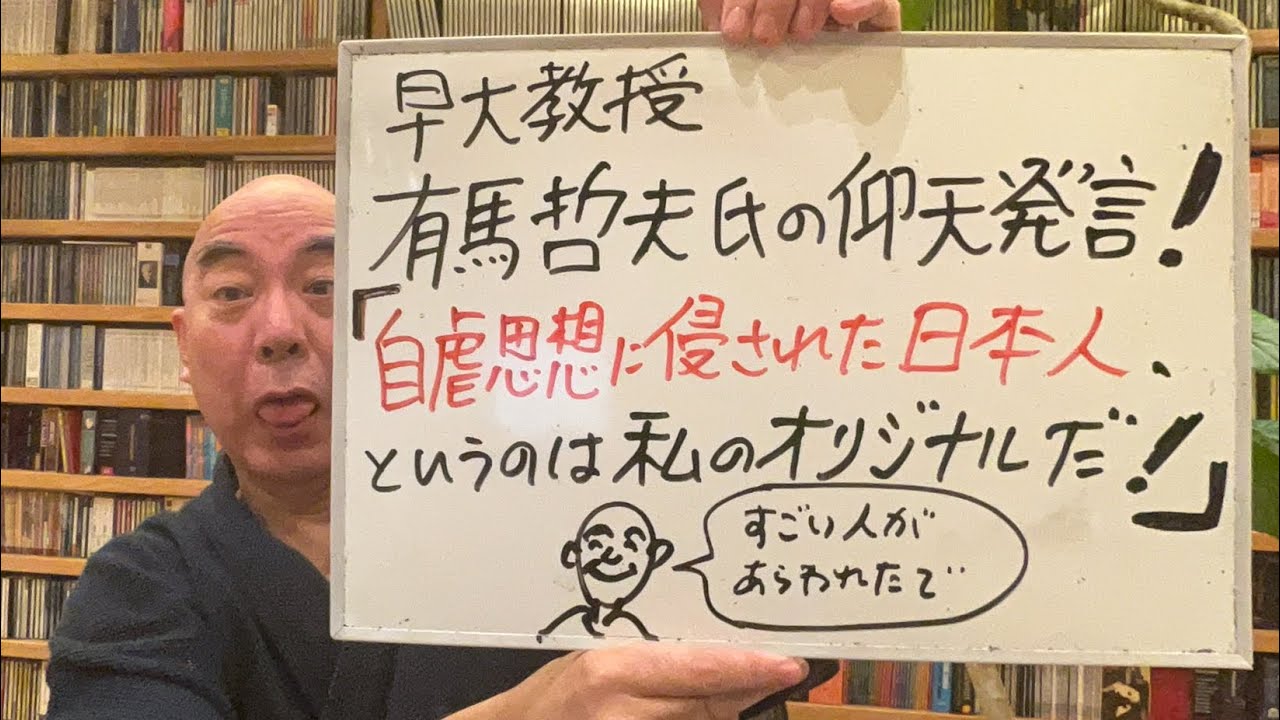 早大教授
有馬哲夫氏の仰天発言!
「自虐思想に侵された日本人、
というのは私のオリジナルだ!」
すごい人が
あらわれたで